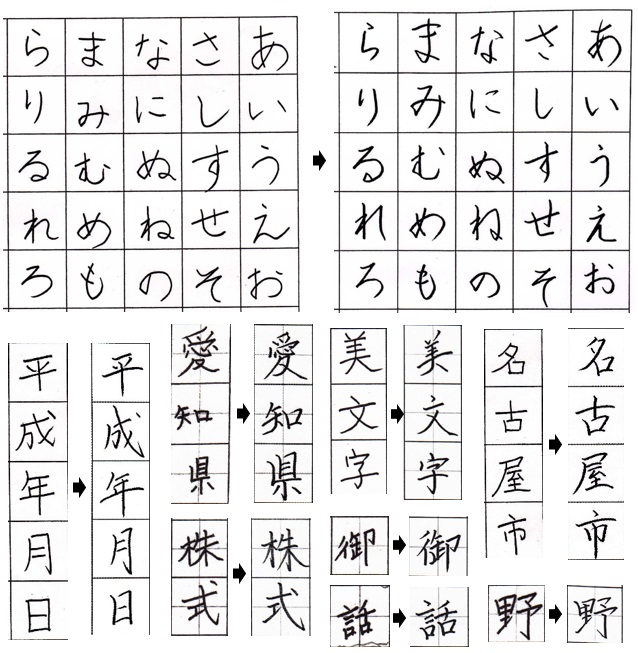 あいうえお
さしすせそ
なにぬねの
まみむめも
らりるれろ
あいうえお
さしすせそ
なにぬねの
まみむめも
らりるれろ
平成年月日
平成年月日
愛知県
愛知県
美文字
美文字
名古屋市
名古屋市
株式
株式
御
御
話
話
野
野